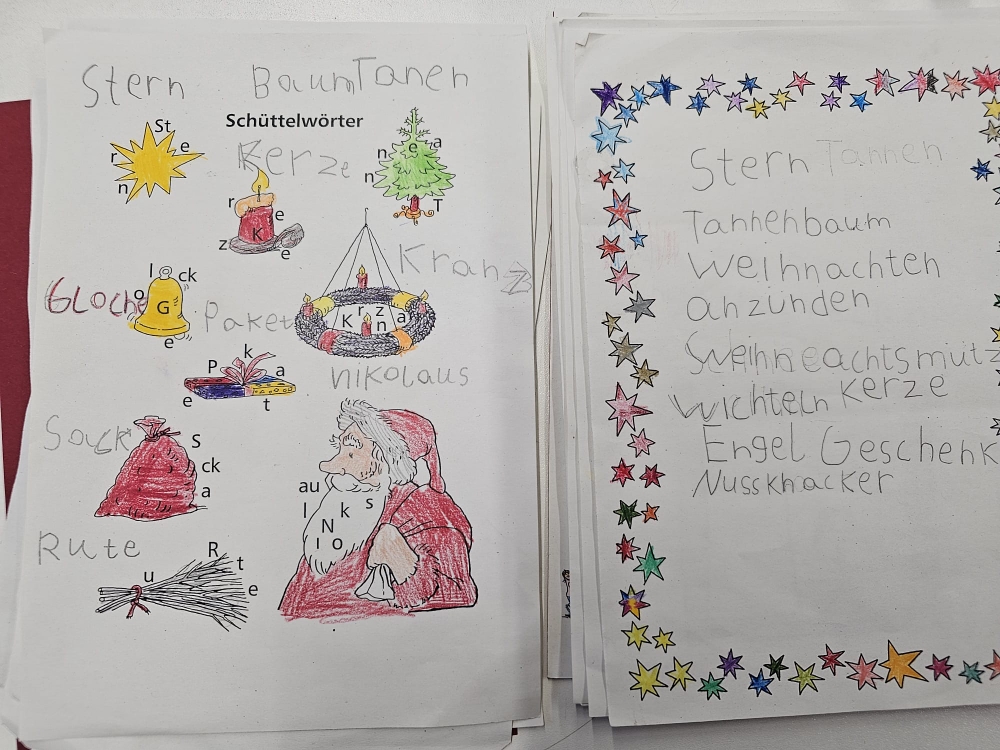 Stern BaumTanen
Schüttelwörter
St
e
r
n
Kerze
r
e
z
K
e
e
a
n
n
T
Gloche
l
ck
o
G
e
Kranz
K
r
z
n
a
Paket
P
k
a
e
t
Nikolaus
au
k
s
l
N
I
o
Sack
S
ck
a
Rute
R
u
t
e
Stern Tannen
Tannenbaum
Weihnachten
anzünden
Weihneachtsmütz
Wichteln Kerze
Engel Geschenk
Nussknacker